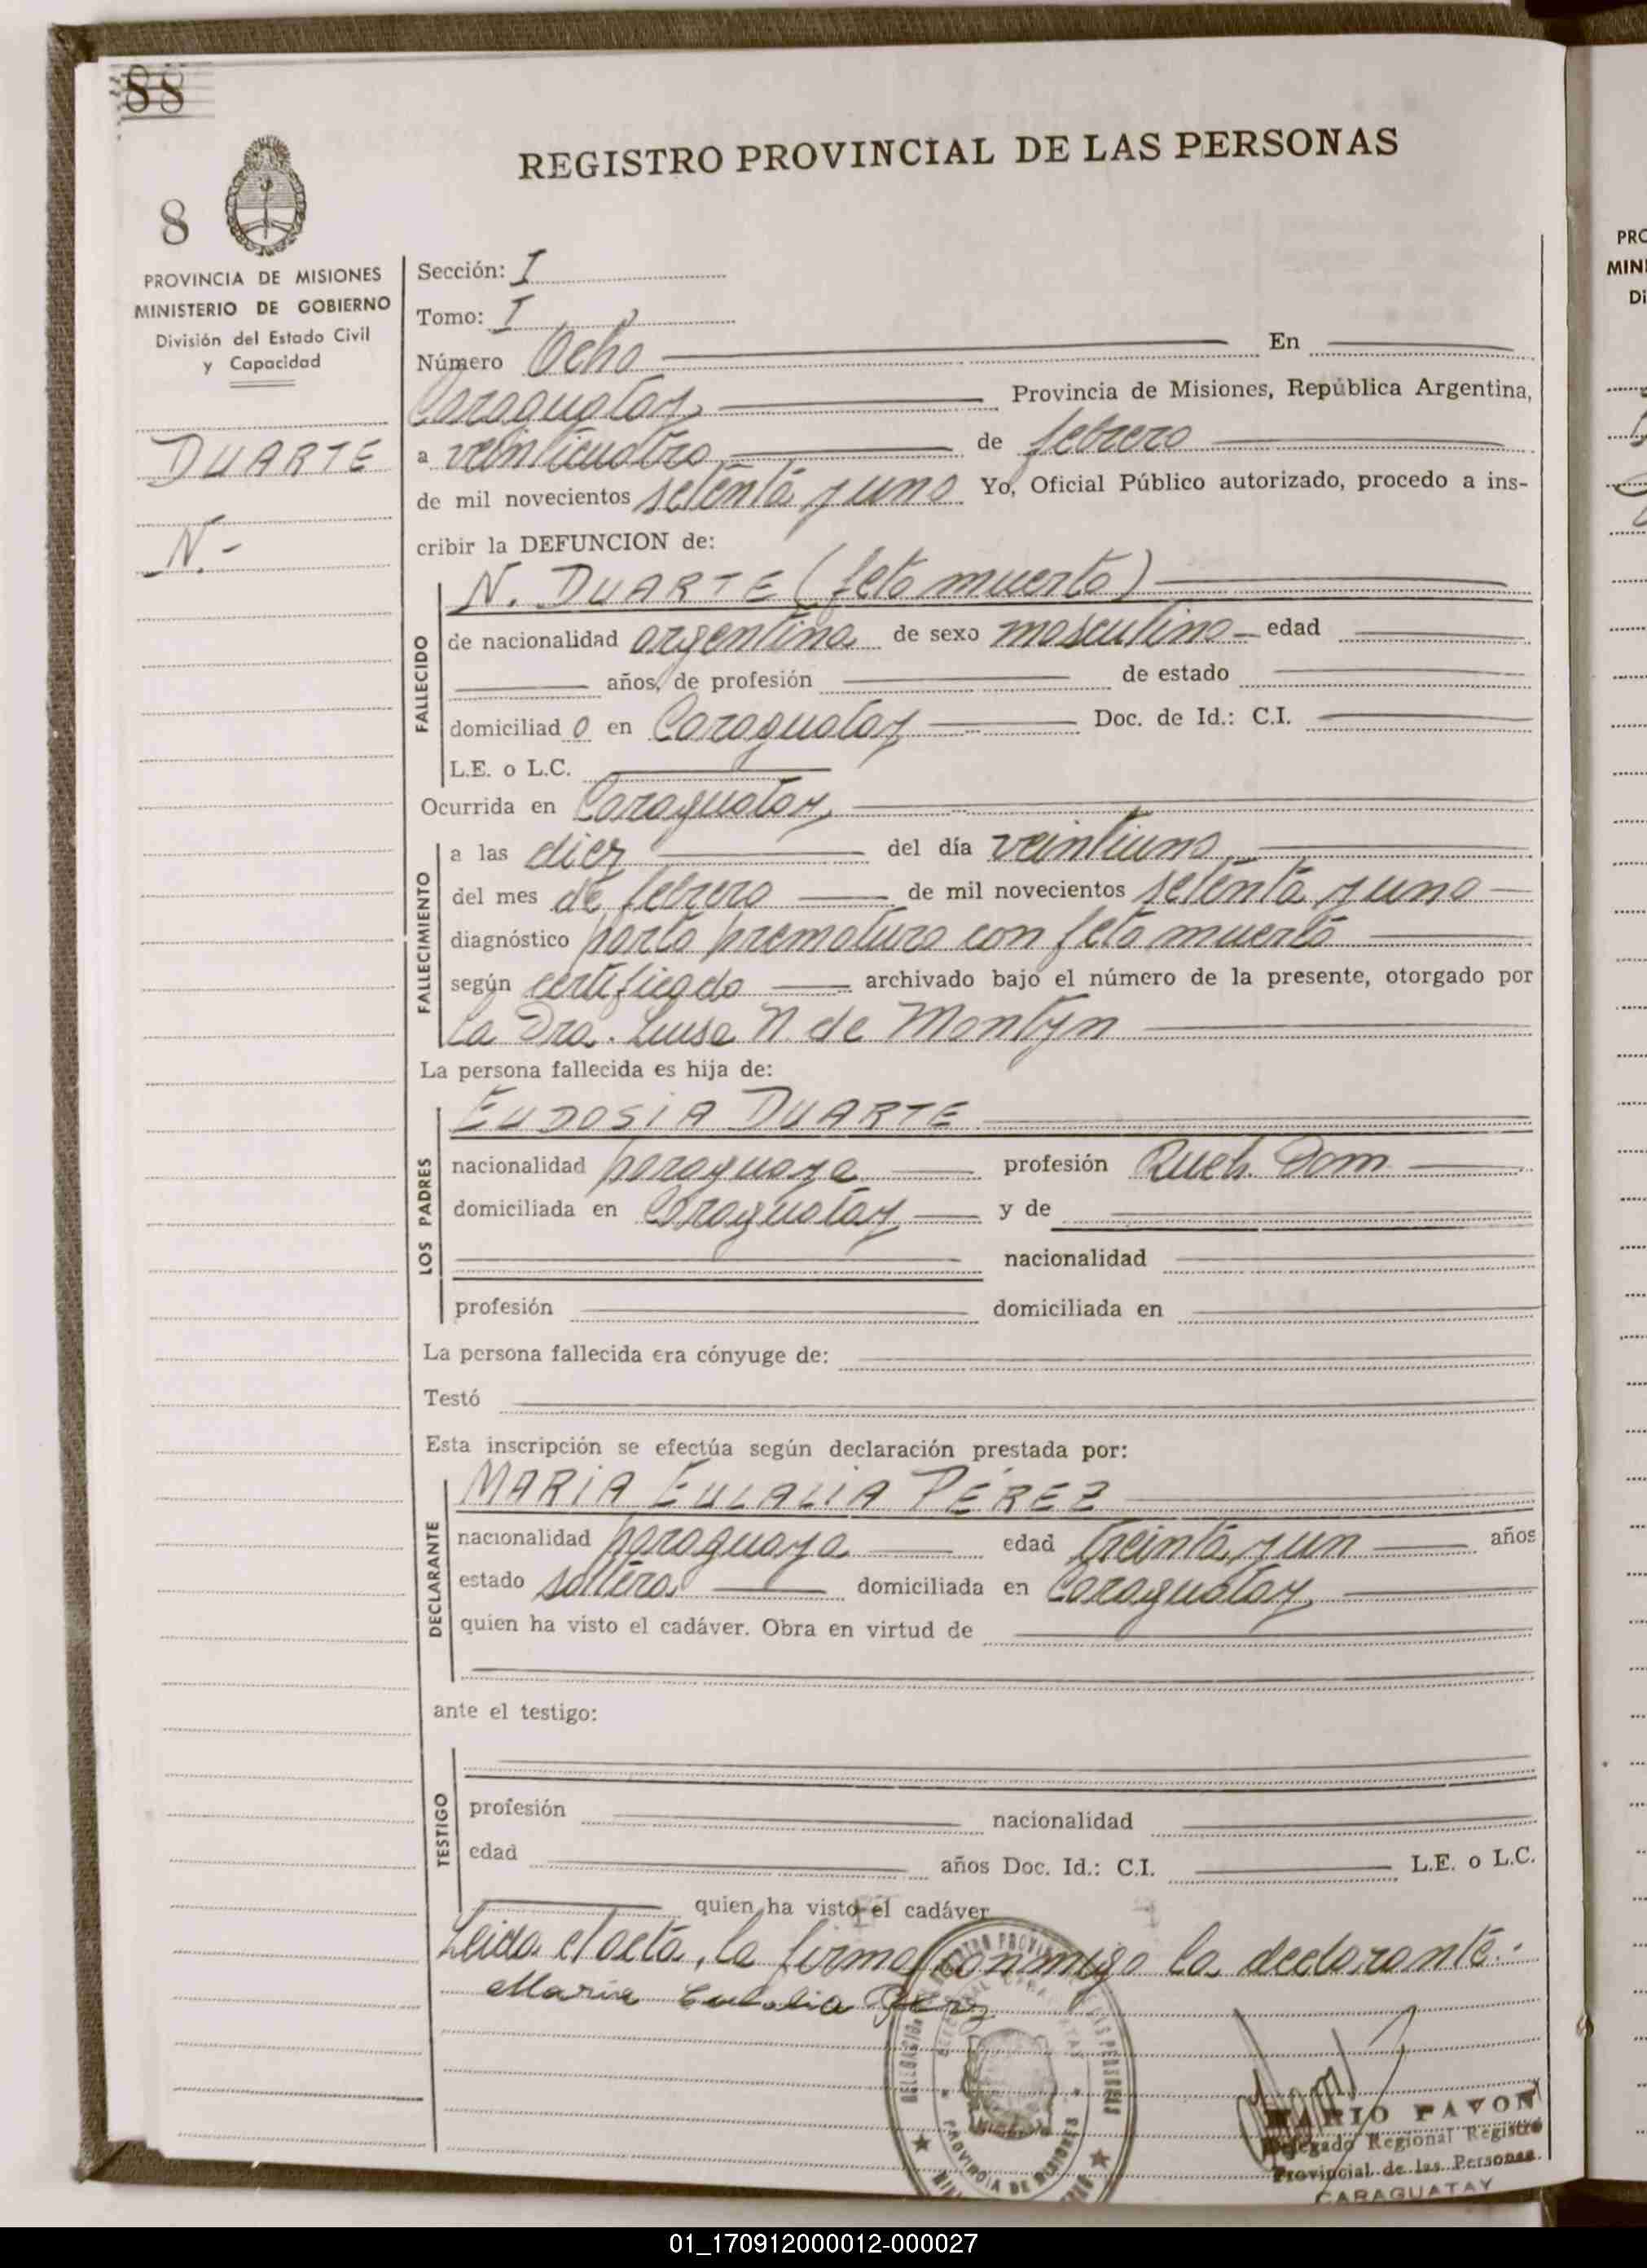 88
8
REGISTRO PROVINCIAL DE LAS PERSONAS
PROVINCIA DE MISIONES
MINISTERIO DE GOBIERNO
División del Estado Civil
y Capacidad
DUARTE
N.-
Sección: I
Tomo: I
Número Ocho En
Caraguatay Provincia de Misiones, República Argentina,
a veinticuatro de febrero
de mil novecientos setenta y uno Yo, Oficial Público autorizado, procedo a ins-
cribir la DEFUNCION de:
FALLECIDO
N. DUARTE (feto muerto)
de nacionalidad argentina de sexo masculino edad
años, de profesión de estado
domiciliad o en Caraguatay Doc. de Id.: C.I.
L.E. o L.C.
Ocurrida en Caraguatay
FALLECIMIENTO
a las diez del día veintiuno
del mes de febrero de mil novecientos setenta y uno
diagnóstico parto prematuro con feto muerto
según certificado archivado bajo el número de la presente, otorgado por
la Dra. Luisa N. de
La persona fallecida es hija de:
LOS PADRES
EUDOSIA DUARTE
nacionalidad paraguaya profesión Queh. Dom
domiciliada en Caraguatay y de
nacionalidad
profesión domiciliada en
La persona fallecida era cónyuge de:
Testó
Esta inscripción se efectúa según declaración prestada por:
DECLARANTE
MARIA EULALIA PÉREZ
nacionalidad paraguaya edad treinta y un años
estado soltera domiciliada en Caraguatay
quien ha visto el cadáver. Obra en virtud de
ante el testigo:
TESTIGO
profesión nacionalidad
edad años Doc. Id.: C.I. L.E. o L.C.
quien ha visto el cadáver
Leida el acta, la firma conmigo la declarante.:
Maria Eulalia Perez
PROVINCIA DE MISIONES
MARIO PAVON
Delegado Regional Registro
Provincial de las Personas
CARAGUATAY
PRO
MINI
Di
01_170912000012-000027